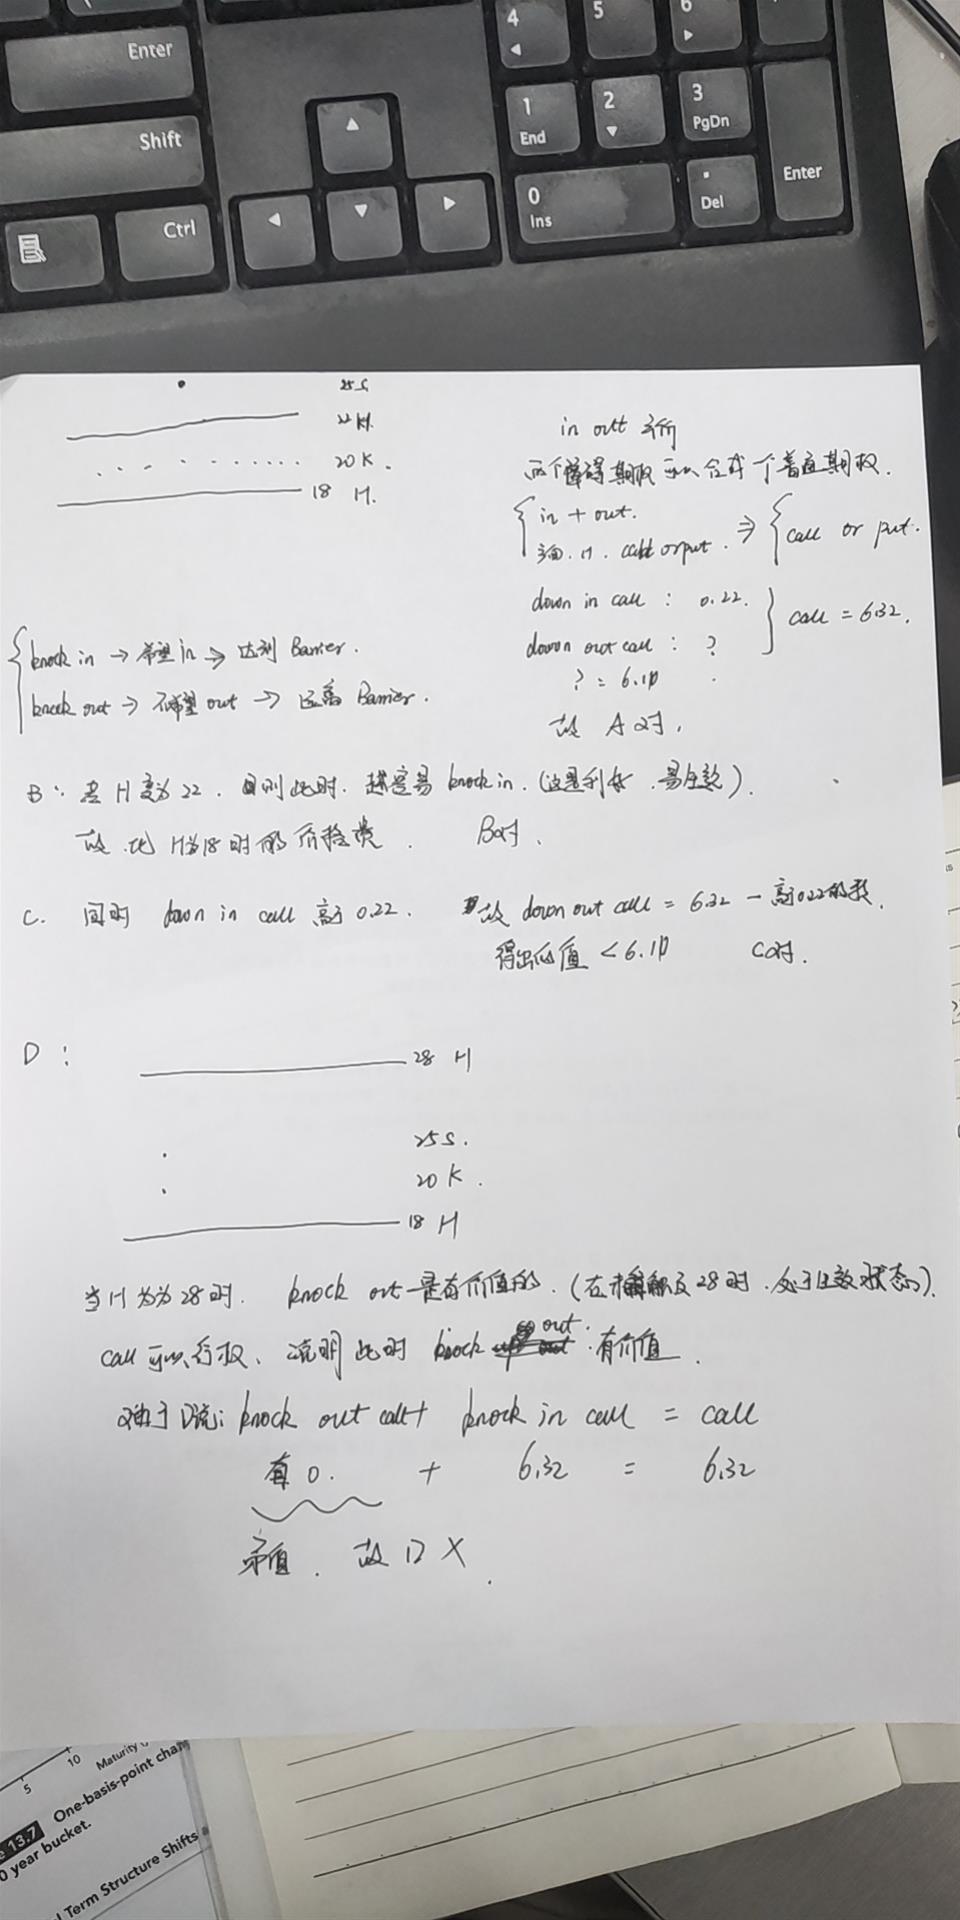 Enter
Shift
Ctrl
4
5
6
1
End
2
3
PgDn
0
Ins
.
Del
Enter
25 S
22 H.
20 K.
18 H.
in out 平价
两个障碍期权可以合成一个普通期权.
in + out.
H. call or put. ⇒ call or put.
down in call : 0.22.
down out call : ?
call = 6.32.
? = 6.10
故 A对.
knock in → 希望in → 达到 Barrier.
knock out → 不希望out → 远离 Barrier.
B: 若 H 变为 22. 则此时. 越容易 knock in. (这是利好. 易生效).
故. 比 H为18时的价格贵. B对.
C. 同时 down in call 高于 0.22. 故 down out call = 6.32 - 高于0.22的数.
得出的值 < 6.10 C对.
D:
28 H
25 S.
20 K.
18 H
当 H 为 28 时. knock out 是有价值的. (在触及28时. 处于生效状态).
call 可以行权、说明此时 knock out. 有价值.
knock out call + knock in call = call
有 0. + 6.32 = 6.32
矛盾. 故 D X.
5
10
Maturity
13.7 One-basis-point chan
0 year bucket.
Term Structure Shifts